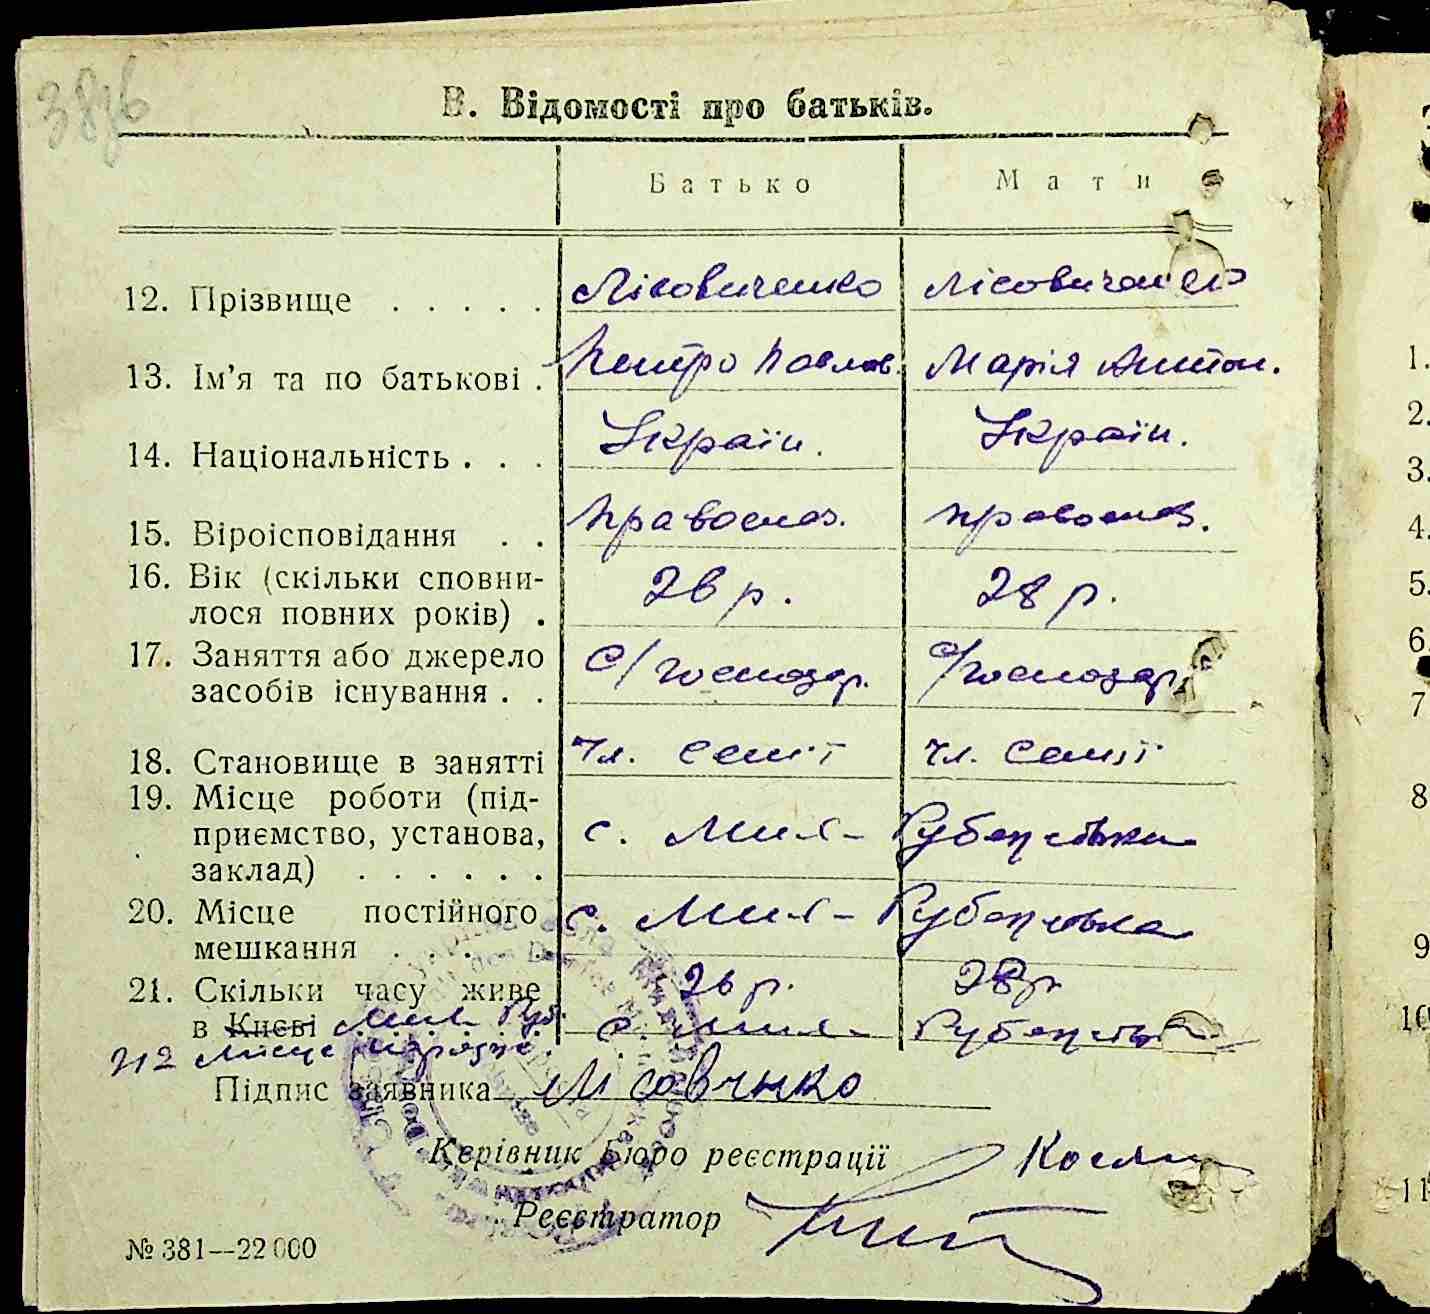 38зв
В. Відомості про батьків.
Батько Мати
12. Прізвище . . . . . Лісовиченко Лісовиченко
13. Ім'я та по батькові . Петро Павлов. Марія Антон.
14. Національність . . . Україн. Україн.
15. Віроісповідання . . Православ. православ.
16. Вік (скільки сповни-
лося повних років) . 26 р. 28 р.
17. Заняття або джерело
засобів існування . . С/господар. С/господар.
18. Становище в занятті чл. семії чл. семії
19. Місце роботи (під-
приємство, установа,
заклад) . . . . . . с. Мила-
20. Місце постійного
мешкання . . . . . с. Мила-
21. Скільки часу живе 26 р. 28 р.
в Києві с. Мила-
Підпис заявника Лісовчнко
Керівник Бюро реєстрації
Реєстратор
№ 381—22 000
1.
2.
3.
4.
5.
6.
7
8
9
10
11